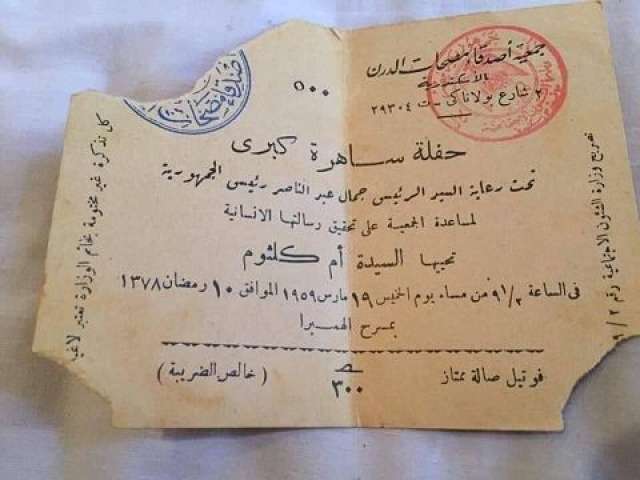 جمعية أصدقاء مصحات الدرن
بالأسكندرية
٢ شارع بولاناكى ت ٢٩٣٠٤
٥٠٠
حفلة ساهرة كبرى
تحت رعاية السيد الرئيس جمال عبد الناصر رئيس الجمهورية
لمساعدة الجمعية على تحقيق رسالتها الانسانية
تحييها السيدة أم كلثوم
فى الساعة ٩١/٢ من مساء يوم الخميس ١٩ مارس ١٩٥٩ الموافق ١٠ رمضان ١٣٧٨
بمسرح الهمبرا
فوتيل صالة ممتاز
٣٠٠
( خالص الضريبة )
تصريح وزارة الشئون الاجتماعية رقم ٩/٢
كل تذكرة غير مختومة بخاتم الوزارة تعتبر لاغية